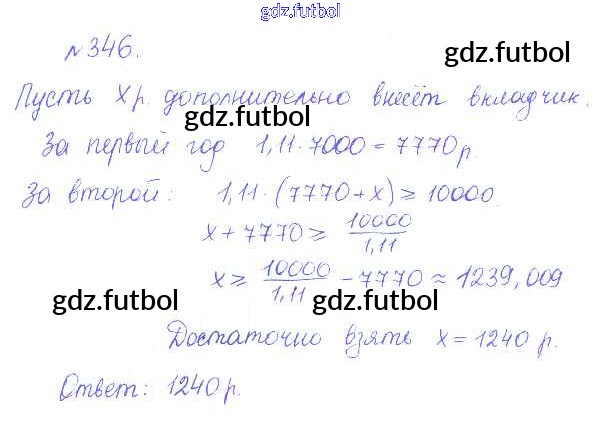 gdz.futbol
№ 346.
gdz.futbol
Пусть х р. дополнительно внесёт вкладчик.
gdz.futbol
За первый год 1,11·7000 = 7770 р.
За второй: 1,11·(7770+х) ≥ 10000
х + 7770 ≥ 10000/1,11
х ≥ 10000/1,11 − 7770 ≈ 1239,009
gdz.futbol gdz.futbol
Достаточно взять х = 1240 р.
Ответ: 1240 р.